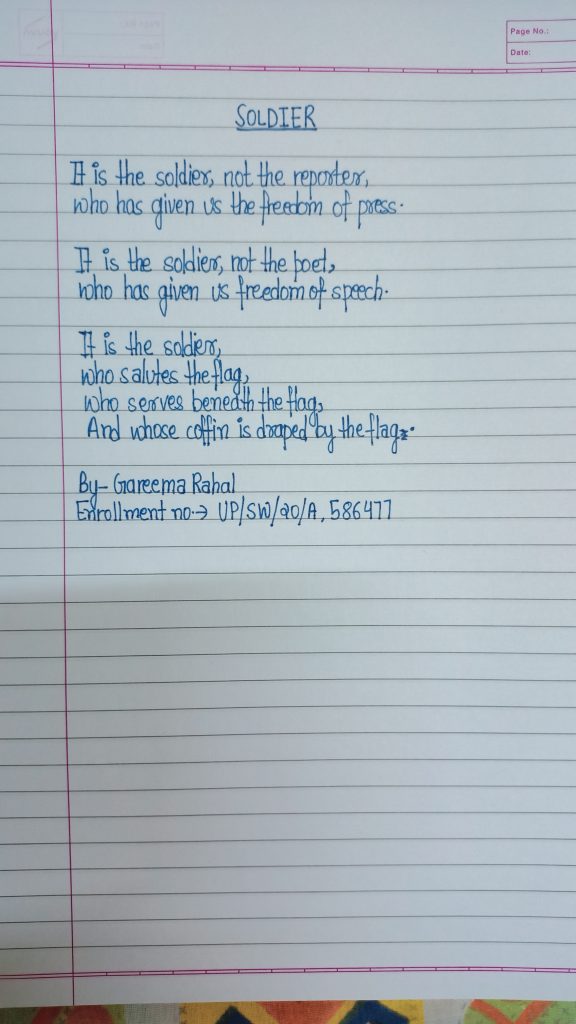 Page No.:
Date:
SOLDIER
It is the soldier, not the reporter,
who has given us the freedom of press.
It is the soldier, not the poet,
who has given us freedom of speech.
It is the soldier,
who salutes the flag,
who serves beneath the flag,
And whose coffin is draped by the flag.
By- Gareema Rahal
Enrollment no.→ UP/SW/20/A, 586477